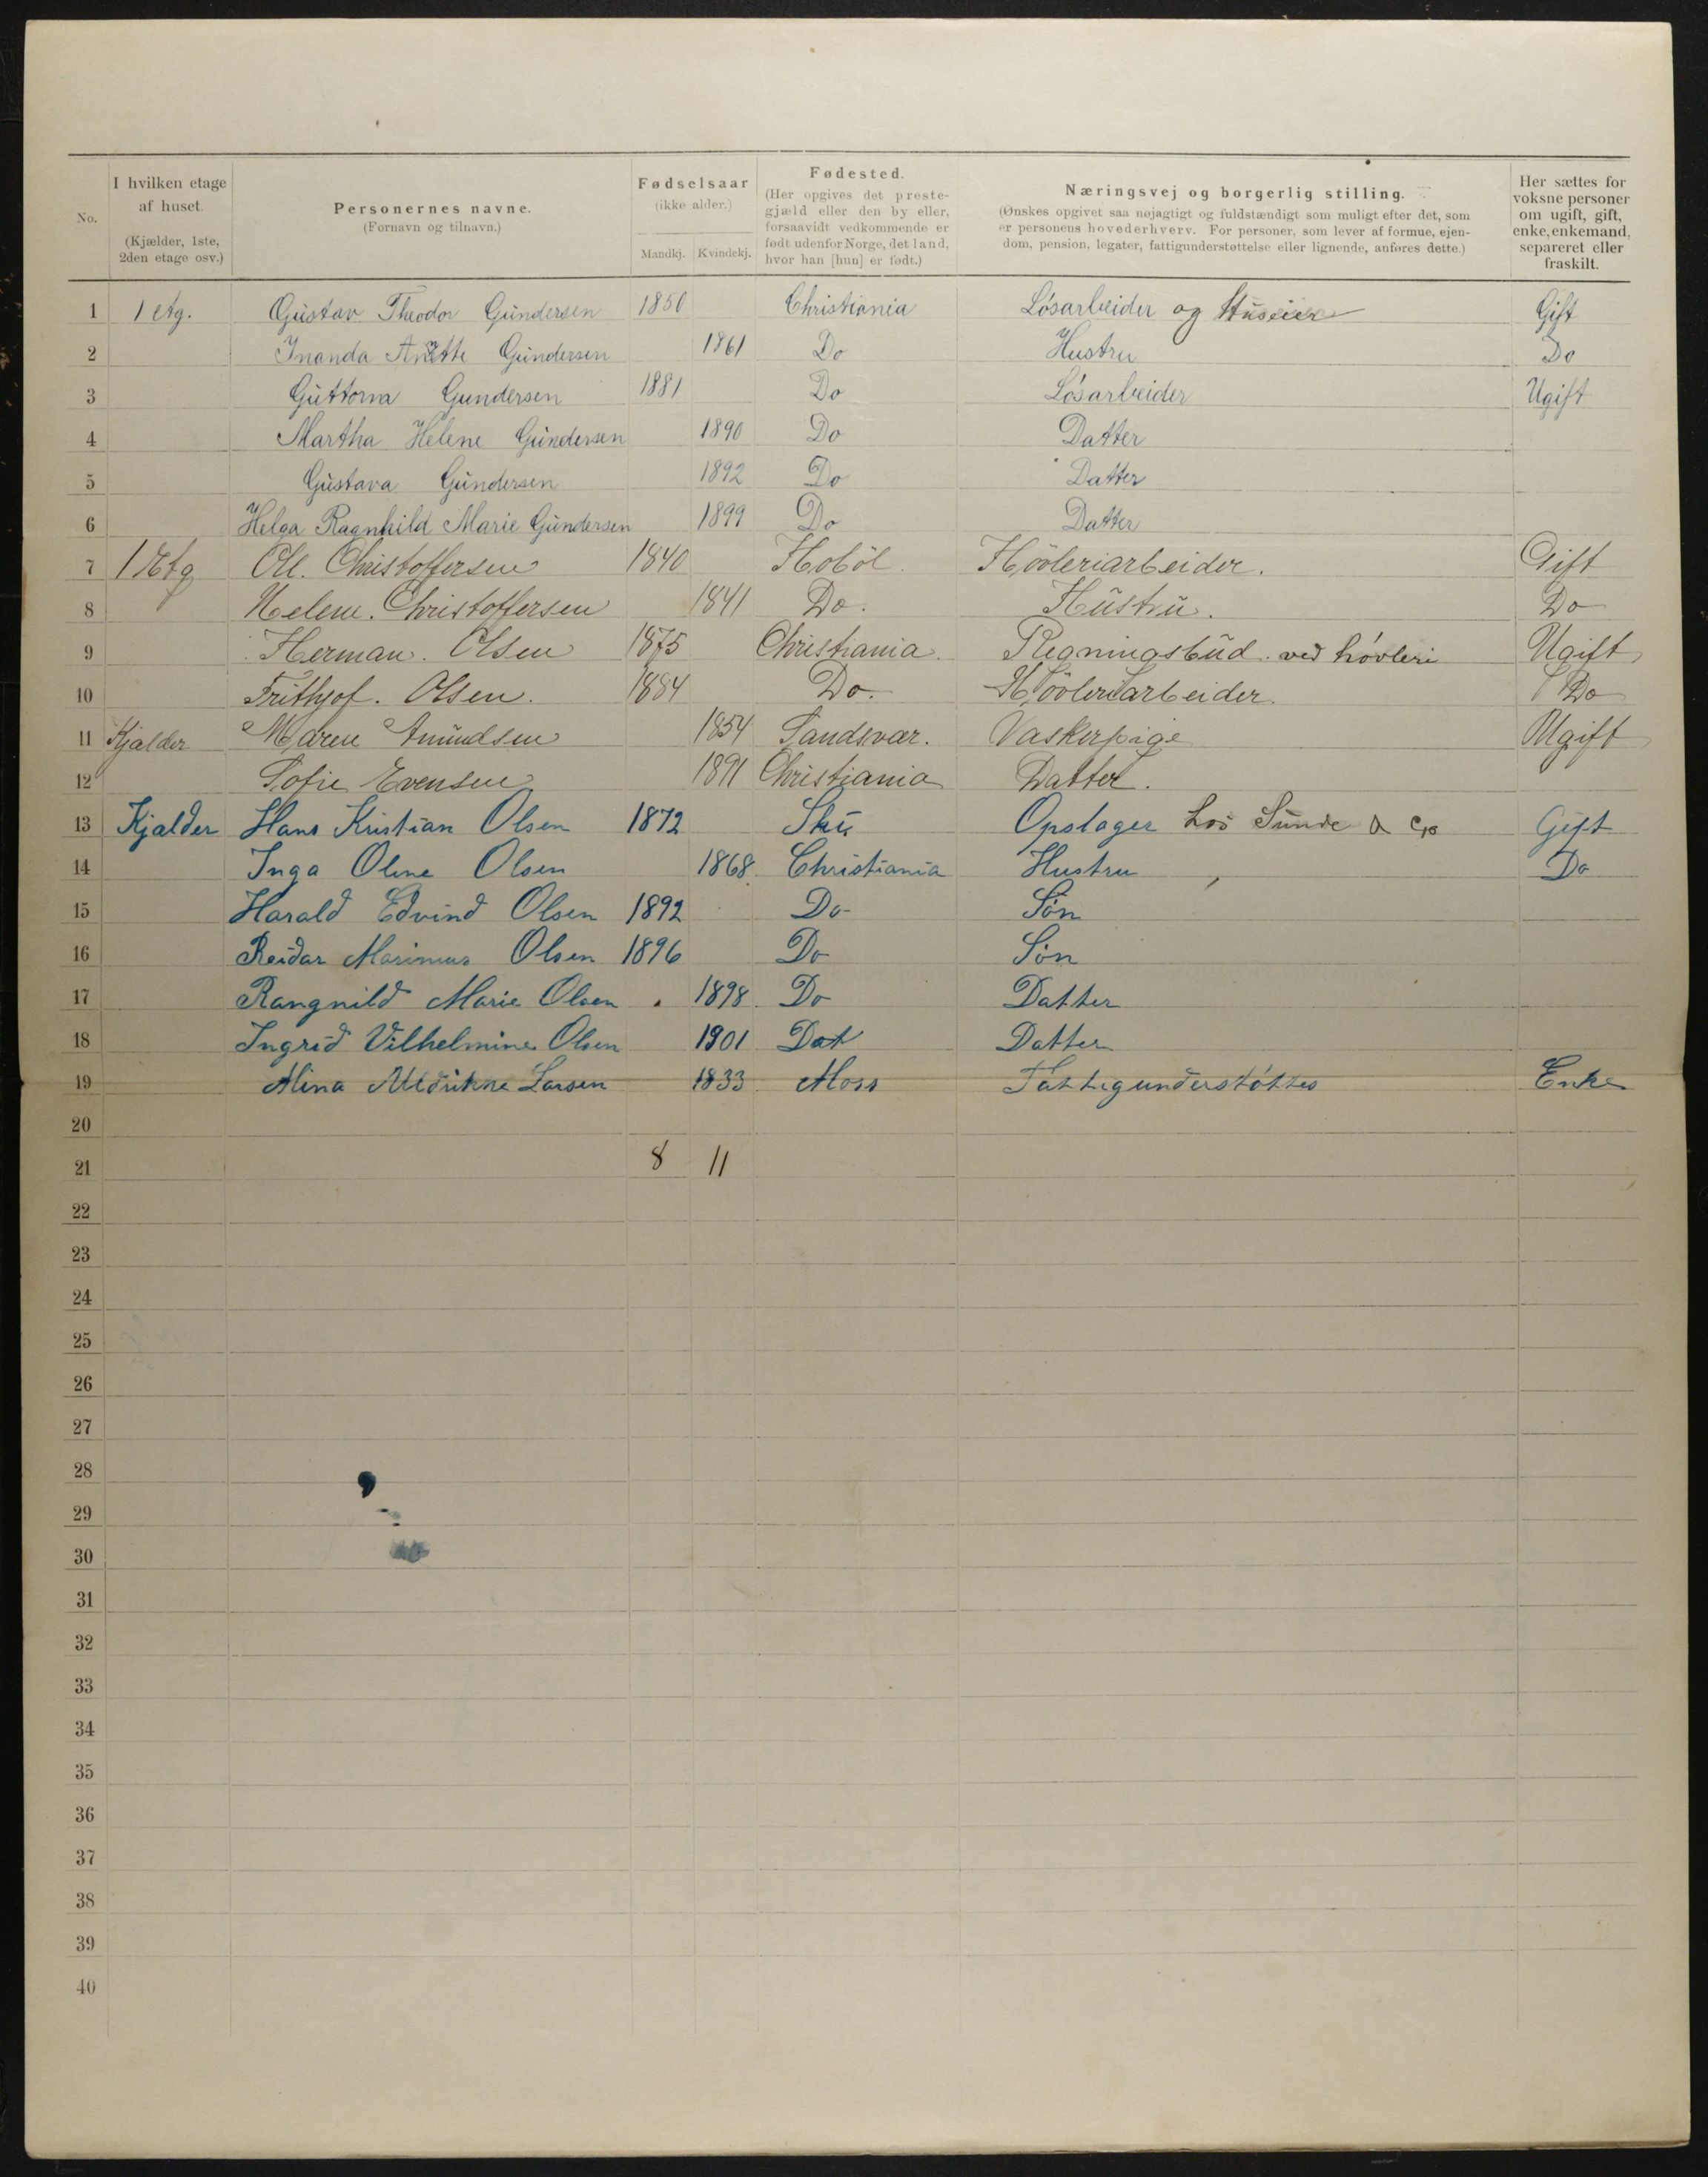 No.
I hvilken etage af huset. (Kjælder, 1ste, 2den etage osv.)
Personernes navne. (Fornavn og tilnavn.)
Fødselsaar (ikke alder.) Mandkj. Kvindekj.
Fødested. (Her opgives det prestegjæld eller den by eller, forsaavidt vedkommende er født udenfor Norge, det land, hvor han [hun] er født.)
Næringsvej og borgerlig stilling. (Ønskes opgivet saa nøjagtigt og fuldstændigt som muligt efter det, som er personens hovederhverv. For personer, som lever af formue, ejendom, pension, legater, fattigunderstøttelse eller lignende, anføres dette.)
Her sættes for voksne personer om ugift, gift, enke, enkemand, separeret eller fraskilt.
1 1 etg. Gustav Theodor Gundersen 1850 Christiania Løsarbeider og Huseier Gift
2 Inanda Anette Gundersen 1861 Do Hustru Do
3 Guttorm Gundersen 1881 Do Løsarbeider Ugift
4 Martha Helene Gundersen 1890 Do Datter
5 Gustava Gundersen 1892 Do Datter
6 Helga Ragnhild Marie Gundersen 1899 Do Datter
7 1 Etg Ole. Christoffersen 1840 Hobøl. Høvleriarbeider. Gift
8 Helene. Christoffersen 1841 Do. Hustru. Do
9 Herman. Olsen 1875 Christiania. Regningsbud. ved høvleri Ugift
10 Frithjof. Olsen. 1884 Do. Høvleriarbeider. Do
11 Kjælder Maren Amundsen 1854 Sandsvær. Vaskerpige Ugift
12 Sofie Evensen 1891 Christiania Datter.
13 Kjælder Hans Kristian Olsen 1872 Sku Opslager hos Sunde & Co Gift
14 Inga Oline Olsen 1868. Christiania Hustru Do
15 Harald Edvind Olsen 1892 Do Søn
16 Reidar Marinius Olsen 1896 Do Søn
17 Rangnild Marie Olsen 1898. Do Datter
18 Ingrid Vilhelmine Olsen 1901 Dat Datter
19 Mina Larsen 1833. Moss Fattigunderstøttes Enke
20
21 8 11
22
23
24
25
26
27
28
29
30
31
32
33
34
35
36
37
38
39
40